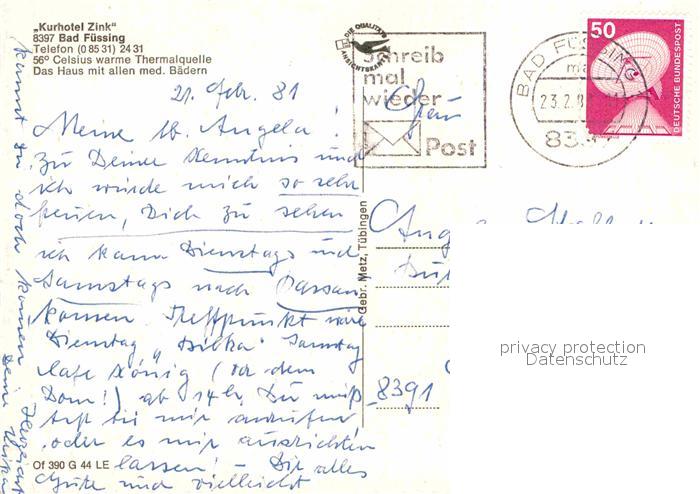 „Kurhotel Zink"
8397 Bad Füssing
Telefon (0 85 31) 24 31
56° Celsius warme Thermalquelle
Das Haus mit allen med. Bädern
DIE QUALITÄTS
ANSICHTSKARTE
Schreib
mal
wieder
Post
BAD FÜSSING
23.2.8
50
DEUTSCHE BUNDESPOST
21. Febr. 81
Meine lb. Angela!
Zu Deiner Kenntnis und
ich würde mich so sehr
freuen, Dich zu sehen
ich kann Dienstags und
Samstags nach Passau
kommen Treffpunkt wäre
Dienstag Samstag
Cafe König (vor dem
Dom!) ab 14 h, Du mußt
bei mir anrufen,
oder es mir ausrichten
lassen! – Dir alles
Gute und vielleicht
kannst Du doch kommen
Herzlichst
Deine
Frau
8391
Gebr. Metz, Tübingen
Of 390 G 44 LE
privacy protection
Datenschutz